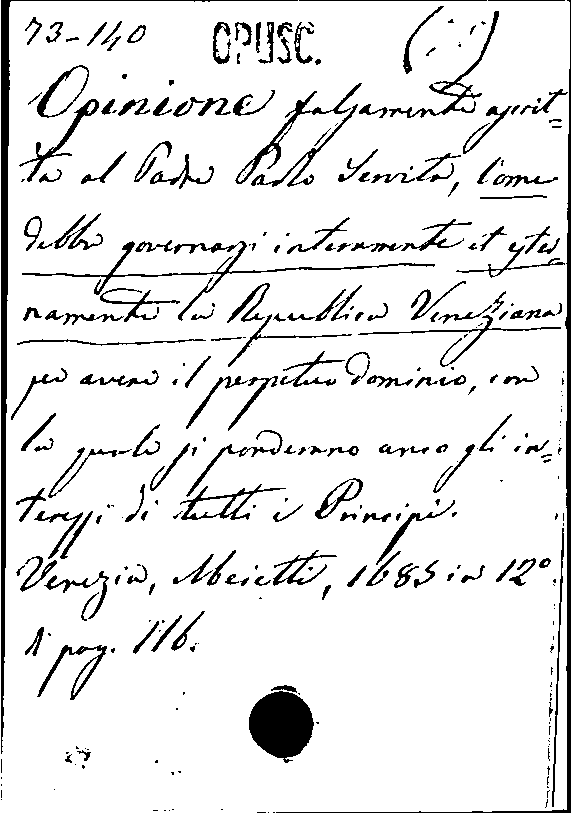 73-140 OPUSC.
Opinione falsamente ascrit=
ta al Padre Paolo Servita, Come
debba governarsi internamente et ester
namente la Repubblica Veneziana
per avere il perpetuo Dominio, con
la quale si ponderano anco gli in=
teressi di tutti i Principi.
Venezia, Meietti, 1685 in 12º.
di pag. 116.